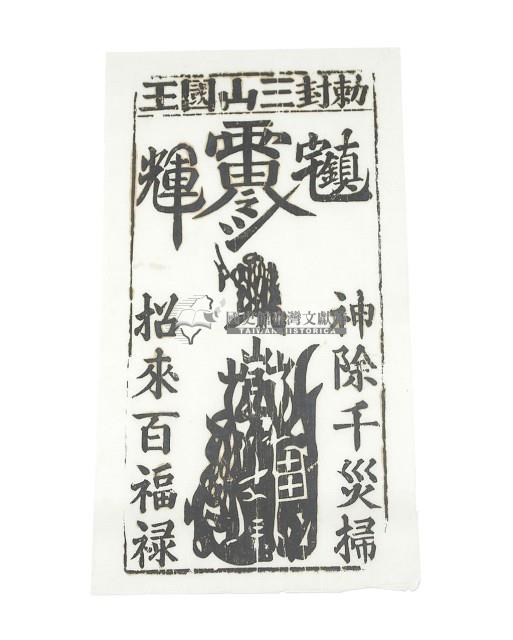 勅封三山國王
鎮宅
輝
神除千災掃
招來百福禄
國史館臺灣文獻館
TAIWAN HISTORICA